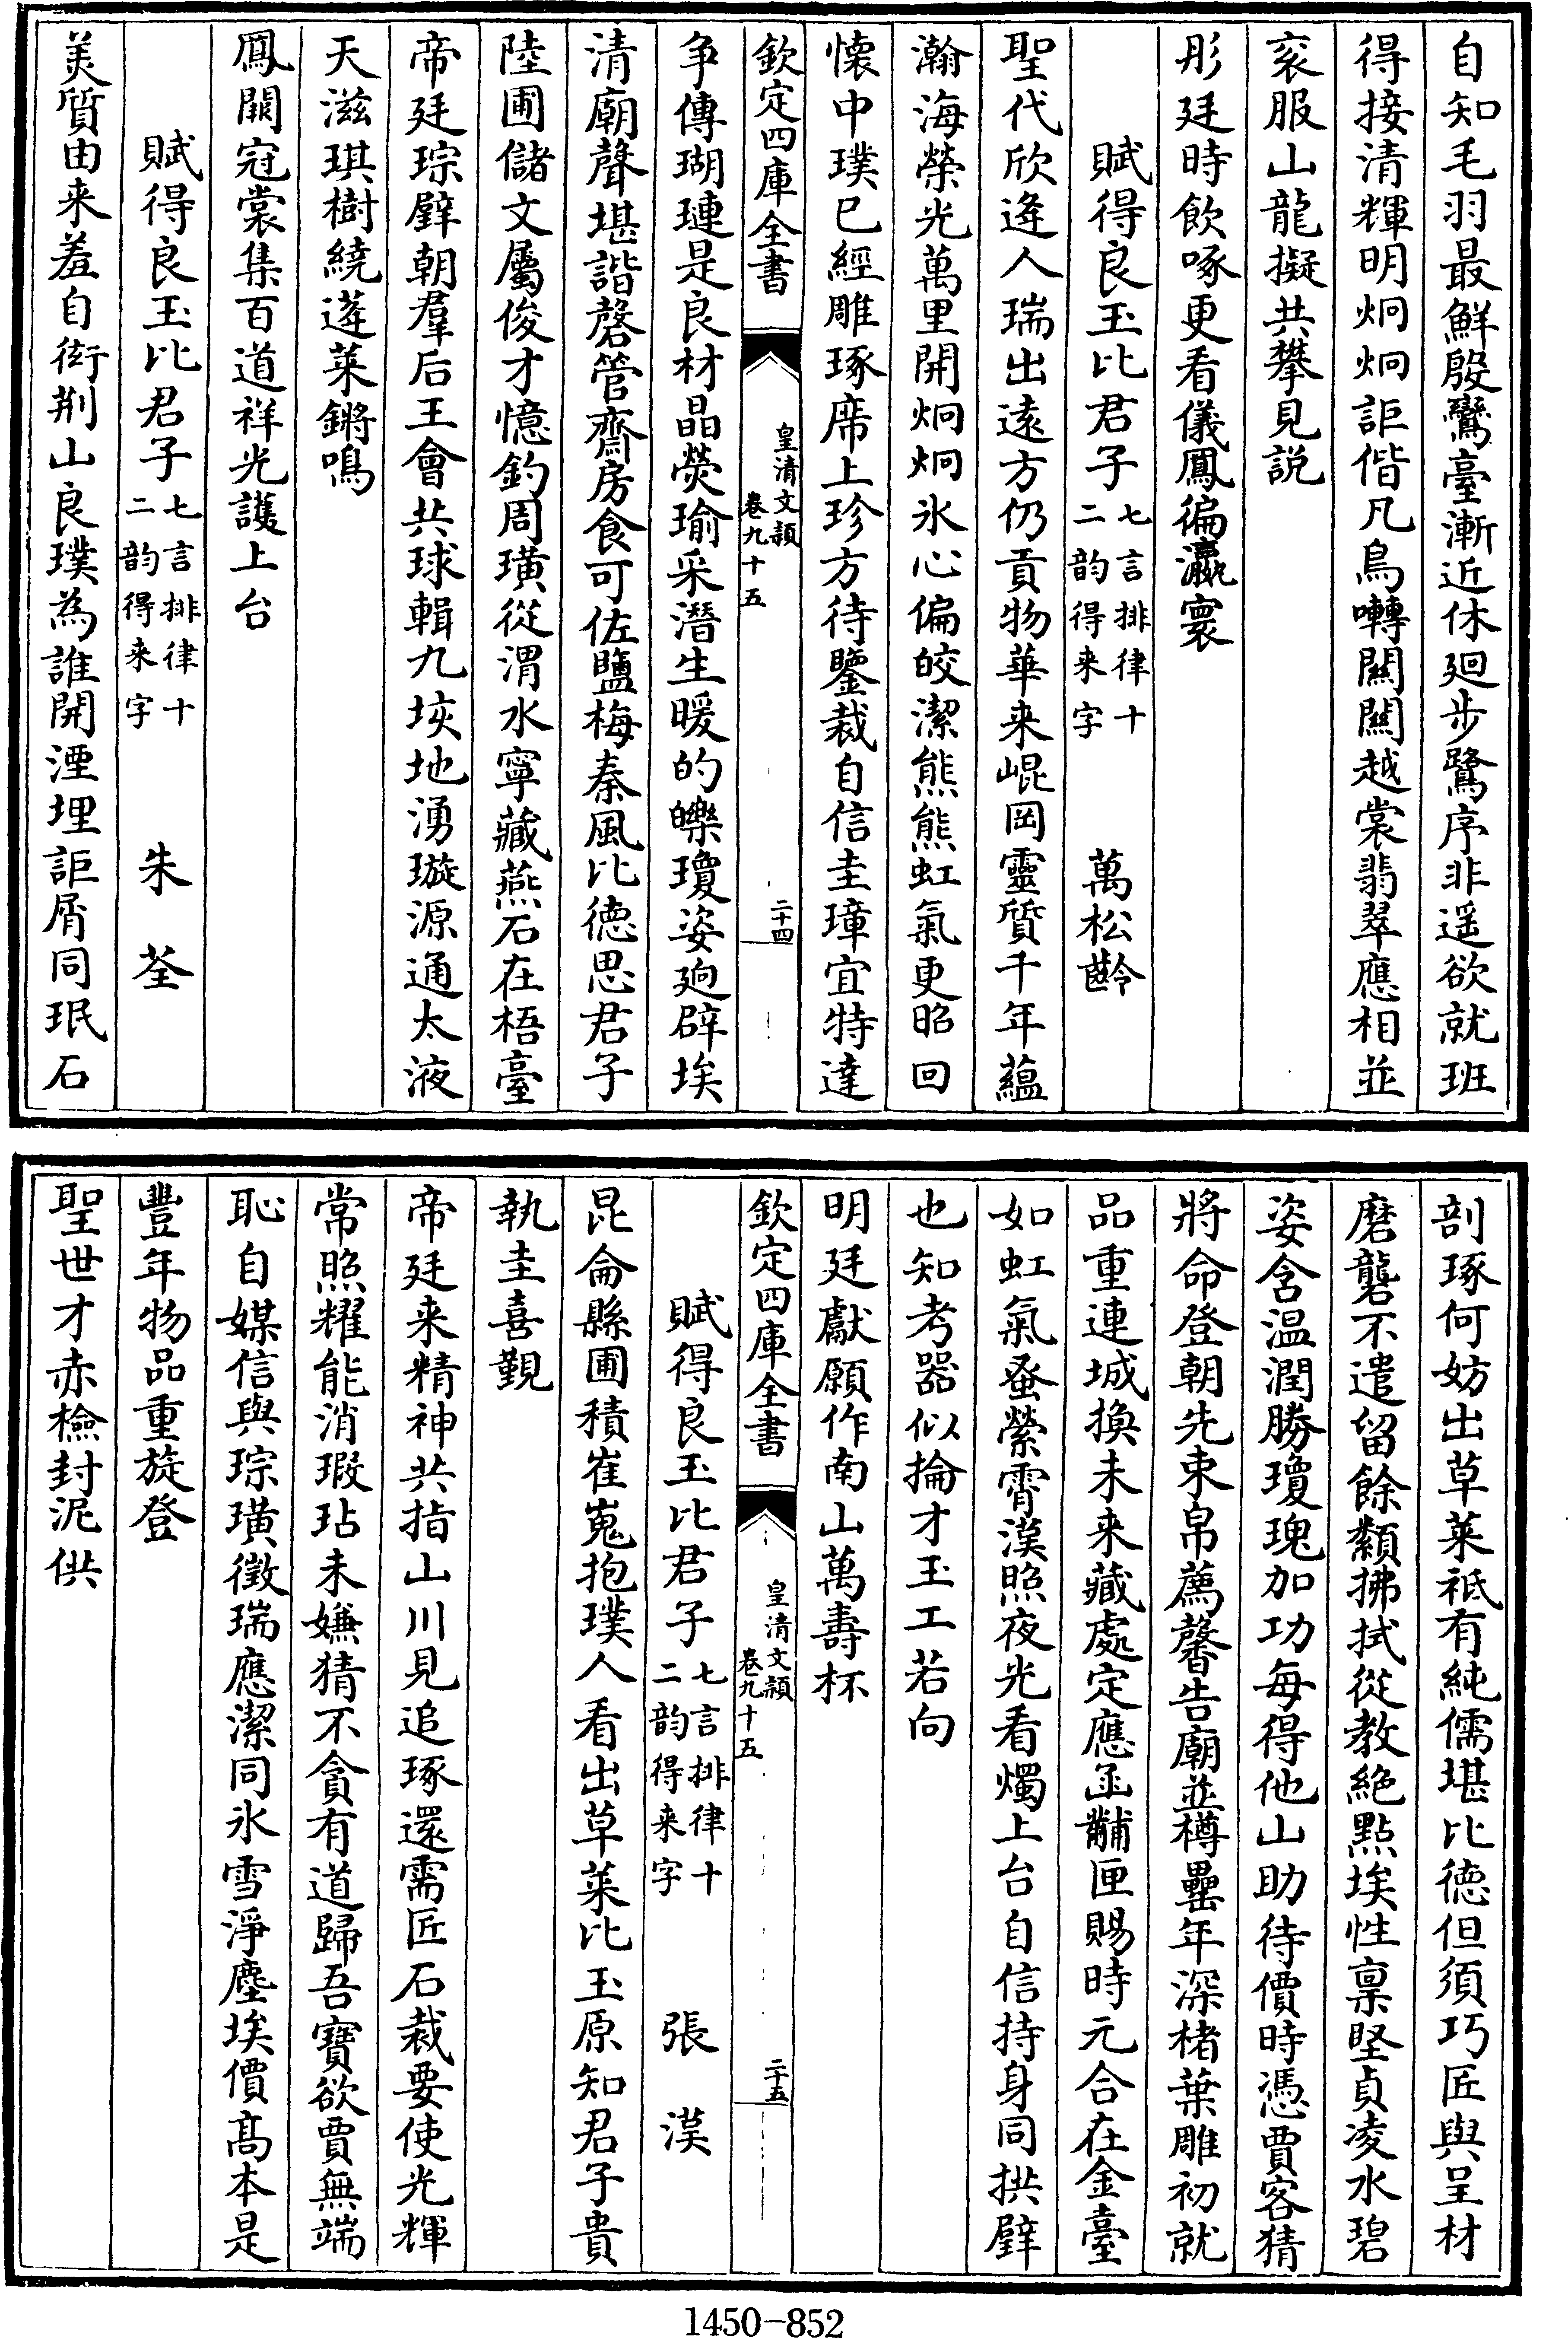 自知毛羽最鮮殷鸞臺漸近休廻步鷺序非遥欲就班
得接清輝明炯炯詎偕凡鳥囀關關越裳翡翠應相並
衮服山龍擬共攀見説
彤廷時飲啄更看儀鳳徧瀛寰
賦得良玉比君子七言排律十二韵得来字 萬松齡
聖代欣逄人瑞出遠方仍貢物華来崐岡靈質千年藴
瀚海榮光萬里開炯炯氷心偏皎潔熊熊虹氣更昭回
懐中璞已經雕琢席上珍方待鑒裁自信圭璋宜特達
欽定四庫全書 皇清文穎卷九十五 二十四
争傳瑚璉是良材晶熒瑜采潛生暖的皪瓊姿迥辟埃
清廟聲堪諧磬管齋房食可佐鹽梅秦風比德思君子
陸圃儲文屬俊才憶釣周璜從渭水寧藏燕石在梧臺
帝廷琮璧朝羣后王會共球輯九垓地湧璇源通太液
天滋琪樹繞蓬萊鏘鳴
鳳闕冠裳集百道祥光護上台
賦得良玉比君子七言排律十二韵得来字 朱荃
美質由来羞自衒荆山良璞為誰開湮埋詎屑同珉石
剖琢何妨出草萊祗有純儒堪比德但須巧匠與呈材
磨礲不遣留餘纇拂拭從教絶點埃性禀堅貞凌水碧
姿含温潤勝瓊瑰加功每得他山助待價時憑賈客猜
將命登朝先束帛薦馨告廟並樽罍年深楮葉雕初就
品重連城換未来藏處定應函黼匣賜時元合在金臺
如虹氣蚤縈霄漢照夜光看燭上台自信持身同拱璧
也知考器似掄才玉工若向
明廷獻願作南山萬壽杯
欽定四庫全書 皇清文穎卷九十五 二十五
賦得良玉比君子七言排律十二韵得来字 張漢
昆侖縣圃積崔嵬抱璞人看出草萊比玉原知君子貴
執圭喜覲
帝廷来精神共指山川見追琢還需匠石裁要使光輝
常照耀能消瑕玷未嫌猜不貪有道歸吾寶欲賈無端
恥自媒信與琮璜徵瑞應潔同氷雪淨塵埃價髙本是
豐年物品重旋登
聖世才赤檢封泥供
1450-852